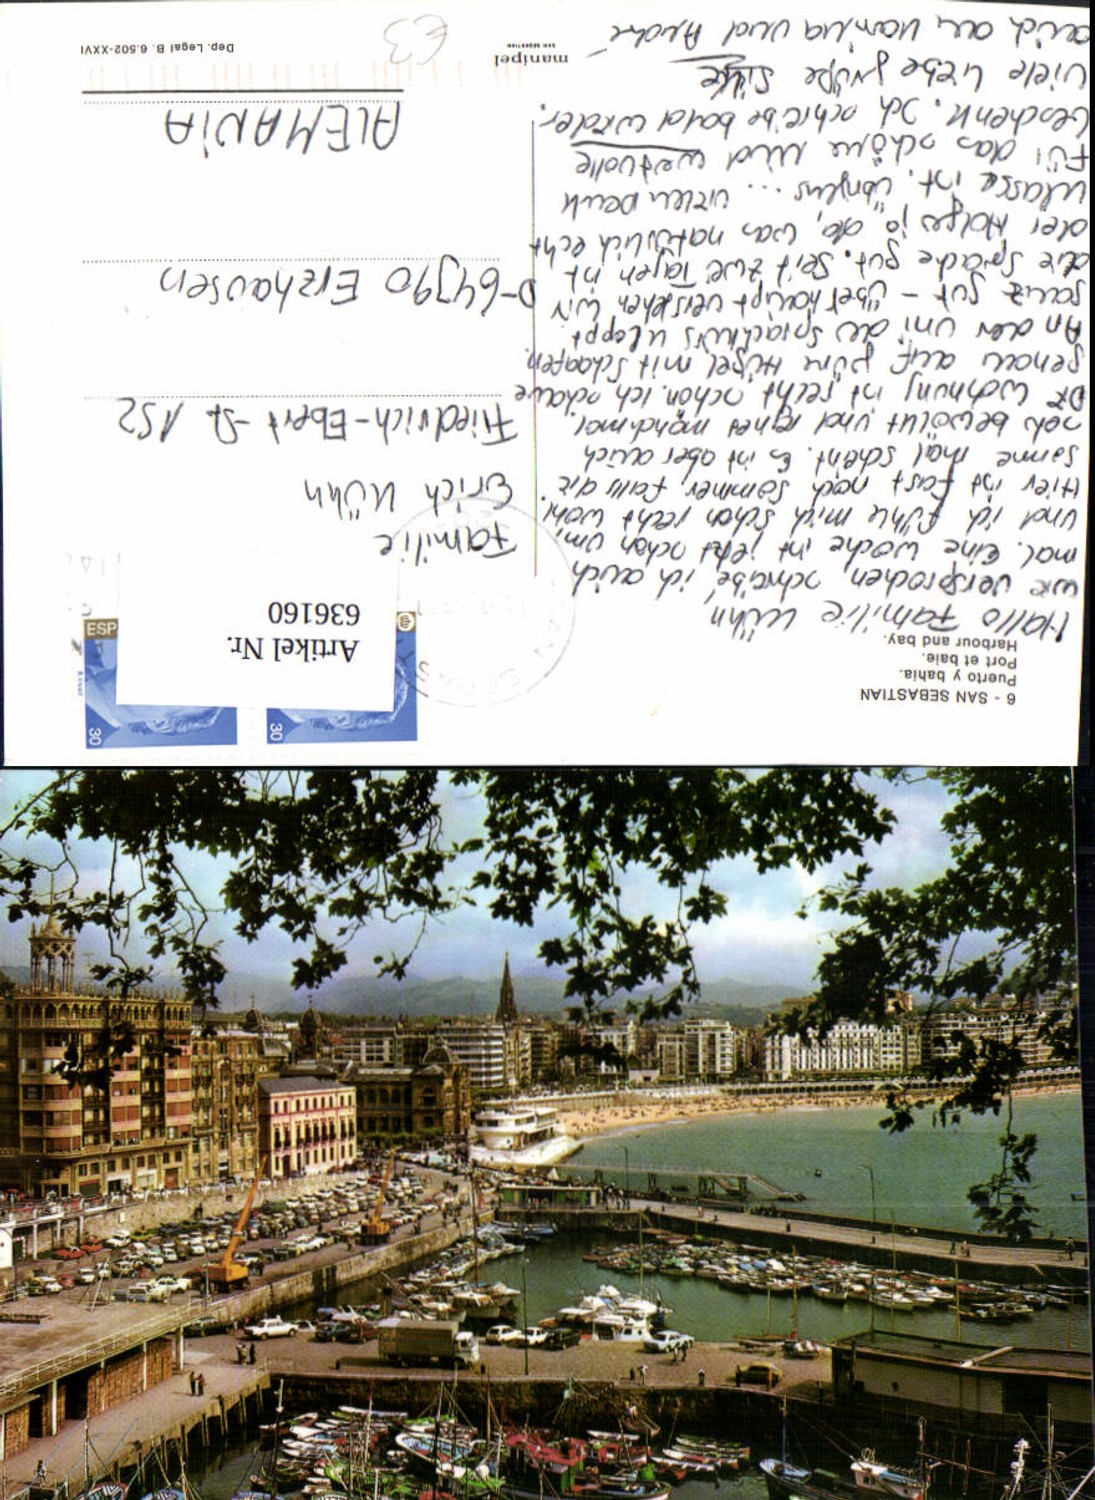 6 - SAN SEBASTIAN
Puerto y bahia.
Port et baie.
Harbour and bay.
Hallo Familie Kühn
wie versprochen, schreibe ich auch
mal. Eine Woche ist jetzt schon um,
und ich fühle mich schon recht wohl
Hier ist fast noch Sommer, falls die
Sonne mal scheint. Es ist aber auch
bewölkt und regnet manchmal.
Die Wohnung ist recht schön. Ich schaue
genau auf grüne Hügel mit Schaafen.
An der Uni, der Sprachkurs kleppt
ganz gut - überhaupt verstehen wir
die Sprache gut. Seit zwei Tagen ist
der Holger ja da, was natürlich echt
klasse ist. Übrigens ... vielen Dank
Für das schöne und wertvolle
Geschenk. Ich schreibe bald wieder,
viele liebe Grüße Silke
auch an und André
ESP
30
30
Artikel Nr.
636160
Familie
Erich Kühn
Friedrich-Ebert-St 152
D-64390 Erzhausen
ALEMANIA
manipel
SAN SEBASTIAN
Dep. Legal B. 6.502-XXVI
€3